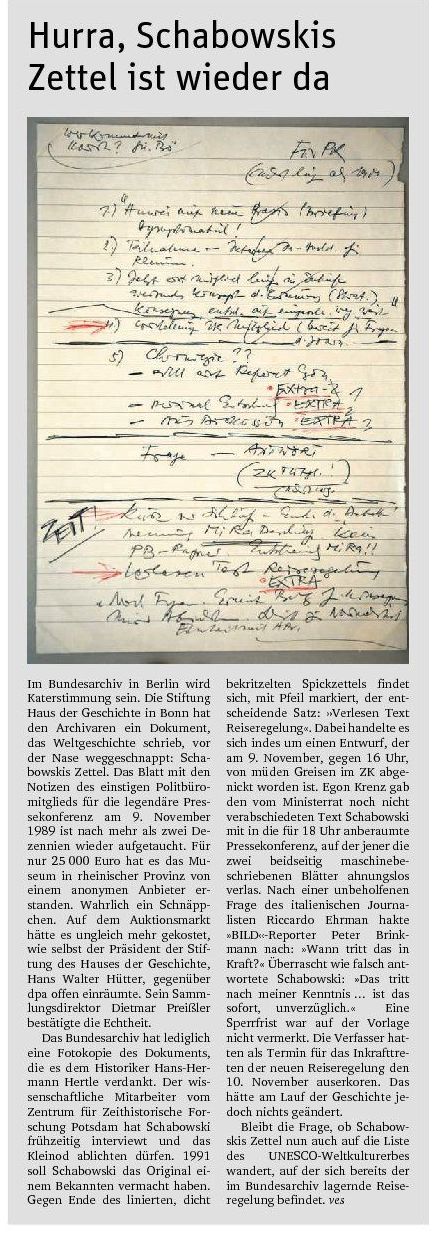 Hurra, Schabowskis
Zettel ist wieder da
5) Chronologie ??
EXTRA
EXTRA
Frage — ANTWORT
ZEIT!
Verlesen Text Reiseregelung
EXTRA
Im Bundesarchiv in Berlin wird
Katerstimmung sein. Die Stiftung
Haus der Geschichte in Bonn hat
den Archivaren ein Dokument,
das Weltgeschichte schrieb, vor
der Nase weggeschnappt: Scha-
bowskis Zettel. Das Blatt mit den
Notizen des einstigen Politbüro-
mitglieds für die legendäre Pres-
sekonferenz am 9. November
1989 ist nach mehr als zwei De-
zennien wieder aufgetaucht. Für
nur 25 000 Euro hat es das Mu-
seum in rheinischer Provinz von
einem anonymen Anbieter er-
standen. Wahrlich ein Schnäpp-
chen. Auf dem Auktionsmarkt
hätte es ungleich mehr gekostet,
wie selbst der Präsident der Stif-
tung des Hauses der Geschichte,
Hans Walter Hütter, gegenüber
dpa offen einräumte. Sein Samm-
lungsdirektor Dietmar Preißler
bestätigte die Echtheit.
Das Bundesarchiv hat lediglich
eine Fotokopie des Dokuments,
die es dem Historiker Hans-Her-
mann Hertle verdankt. Der wis-
senschaftliche Mitarbeiter vom
Zentrum für Zeithistorische For-
schung Potsdam hat Schabowski
frühzeitig interviewt und das
Kleinod ablichten dürfen. 1991
soll Schabowski das Original ei-
nem Bekannten vermacht haben.
Gegen Ende des linierten, dicht
bekritzelten Spickzettels findet
sich, mit Pfeil markiert, der ent-
scheidende Satz: »Verlesen Text
Reiseregelung«. Dabei handelte es
sich indes um einen Entwurf, der
am 9. November, gegen 16 Uhr,
von müden Greisen im ZK abge-
nickt worden ist. Egon Krenz gab
den vom Ministerrat noch nicht
verabschiedeten Text Schabowski
mit in die für 18 Uhr anberaumte
Pressekonferenz, auf der jener die
zwei beidseitig maschinebe-
schriebenen Blätter ahnungslos
verlas. Nach einer unbeholfenen
Frage des italienischen Journa-
listen Riccardo Ehrman hakte
»BILD«-Reporter Peter Brink-
mann nach: »Wann tritt das in
Kraft?« Überrascht wie falsch ant-
wortete Schabowski: »Das tritt
nach meiner Kenntnis ... ist das
sofort, unverzüglich.« Eine
Sperrfrist war auf der Vorlage
nicht vermerkt. Die Verfasser hat-
ten als Termin für das Inkrafttre-
ten der neuen Reiseregelung den
10. November auserkoren. Das
hätte am Lauf der Geschichte je-
doch nichts geändert.
Bleibt die Frage, ob Schabow-
skis Zettel nun auch auf die Liste
des UNESCO-Weltkulturerbes
wandert, auf der sich bereits der
im Bundesarchiv lagernde Reise-
regelung befindet. ves